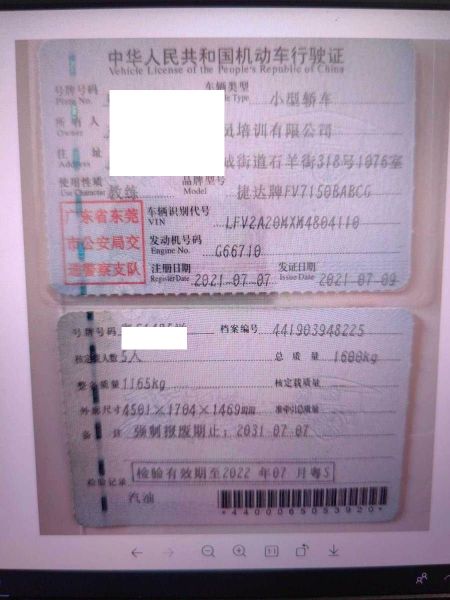 中华人民共和国机动车行驶证
Vehicle License of the People's Republic of China
号牌号码 车辆类型 小型轿车
Plate No. Type
所有人 培训有限公司
Owner
住址 街道石羊街318号1076室
Address
使用性质 教练 品牌型号 捷达牌FV7150BABCG
Use Character Model
广东省东莞
市公安局交
通警察支队
车辆识别代号 LFV2A20MXM4804110
VIN
发动机号码 G66710
Engine No.
注册日期 2021-07-07 发证日期 2021-07-09
Register Date Issue Date
号牌号码 档案编号 441903948225
核定载人数 5人 总质量 1600kg
整备质量 1165kg 核定载质量
外廓尺寸 4501×1704×1469mm 准牵引总质量
备注 强制报废期止：2031-07-07
检验记录 检验有效期至2022年07月粤S
汽油
*4400065053920*
1:1